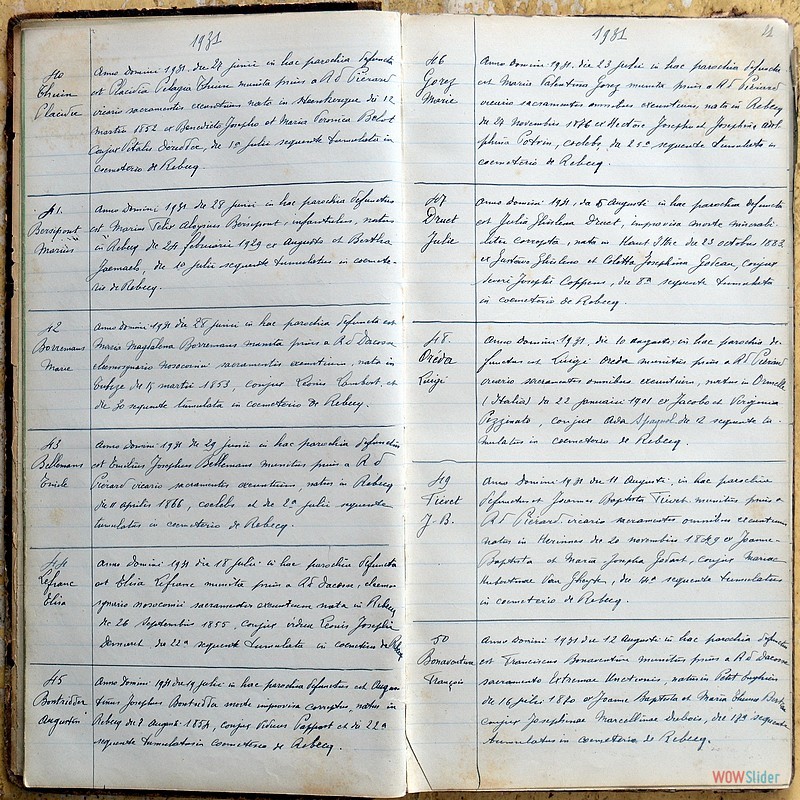 1931
40
Thuin
Placidie
Anno Domini 1931 die 24 junii in hac parochia defuncta
est Placidia Pelagia Thuin munita prius a Rd Pierard
vicario sacramentis exeuntium nata in die 12
martii 1852 ex Benedicto Josepho et Maria Veronica
conjux Vitalis die 1a julii sequente tumulata in
coemeterio de Rebecq.
41.
Berspont
Marius
Anno Domini 1931 die 28 junii in hac parochia defunctus
est Marius Felix Aloysius Berspont, infantulus, natus
in Rebecq die 24 februarii 1929 ex Augusto et Bertha
die 1a julii sequente tumulatus in coemete-
rio de Rebecq.
42
Borremans
Marie
Anno Domini 1931 die 28 junii in hac parochia defuncta est
Maria Magdalena Borremans munita prius a Rd Dacosse
eleemosynario nosocomii sacramentis exeuntium, nata in
die 15 martii 1853, conjux Leonis Lambert, et
die 30 sequente tumulata in coemeterio de Rebecq.
43
Bellemans
Emile
Anno Domini 1931 die 29 junii in hac parochia defunctus
est Emilius Josephus Bellemans munitus prius a Rd
Pierard vicario sacramentis exeuntium, natus in Rebecq
die 11 aprilis 1866, coelebs et die 2a julii sequente
tumulatus in coemeterio de Rebecq.
44
Lefranc
Elisa
Anno Domini 1931 die 18 julii in hac parochia defuncta
est Elisa Lefranc munita prius a Rd Dacosse, eleemo-
synario nosocomii sacramentis exeuntium nata in Rebecq
die 26 septembris 1855, conjux vidua Leonis Josephi
die 22a sequente tumulata in coemeterio de Rebecq
45
Bontridder
Augustin
Anno Domini 1931 die 19 julii in hac parochia defunctus est Augus-
tinus Josephus Bontridder morte improvisa correptus, natus in
Rebecq die 8 augusti 1854, conjux viduus Pappart et die 22a
sequente tumulatus in coemeterio de Rebecq.
1931
46
Gorez
Marie
Anno Domini 1931, die 23 julii in hac parochia defuncta
est Maria Valentina Gorez munita prius a Rd Pierard
vicario sacramentis omnibus exeuntium, nata in Rebecq
die 24 novembris 1876 ex Hectore Joseph et Josephina Adol-
phina Potvin, coelebs, die 25a sequente tumulata in
coemeterio de Rebecq.
47
Druet
Julie
Anno Domini 1931, die 5 Augusti in hac parochia defuncta
est Julia Ghislena Druet, improvisa morte miserabi-
liter correpta, nata in Haut Ittre die 23 octobris 1883
ex Gustavo Ghisleno et Coletta Josephina conjux
Henri Josephi Coppens, die 8a sequente tumulata
in coemeterio de Rebecq.
48.
Oreda
Luigi
Anno Domini 1931, die 10 augusti in hac parochia de-
functus est Luigi Oreda munitus prius a Rd Pierard
vicario sacramentis omnibus exeuntium, natus in
(Italia) die 22 januarii 1901 ex Jacobo et Virginia
Pezzinato, conjux Ada Spagnol, die 12 sequente tu-
mulatus in coemeterio de Rebecq.
49
Tievet
J-B.
Anno Domini 1931 die 11 Augusti, in hac parochia
defunctus est Joannes Baptista Tievet munitus prius a
Rd Pierard vicario sacramentis omnibus exeuntium
natus in Herinnes die 20 novembris 1849 ex Joanne
Baptista et Maria Josepha Godart, conjux Mariae
Hubertinae Van die 14a sequente tumulatus
in coemeterio de Rebecq.
50
Bonaventure
François
Anno Domini 1931 die 12 Augusti in hac parochia defunctus
est Franciscus Bonaventure munitus prius a Rd Dacosse
sacramento Extremae Unctionis, natus in Petit Enghien
die 16 julii 1840 ex Joanne Baptista et Maria
conjux Josephinae Marcellinae Dubois, die 17a sequente
tumulatus in coemeterio de Rebecq.
WOWSlider